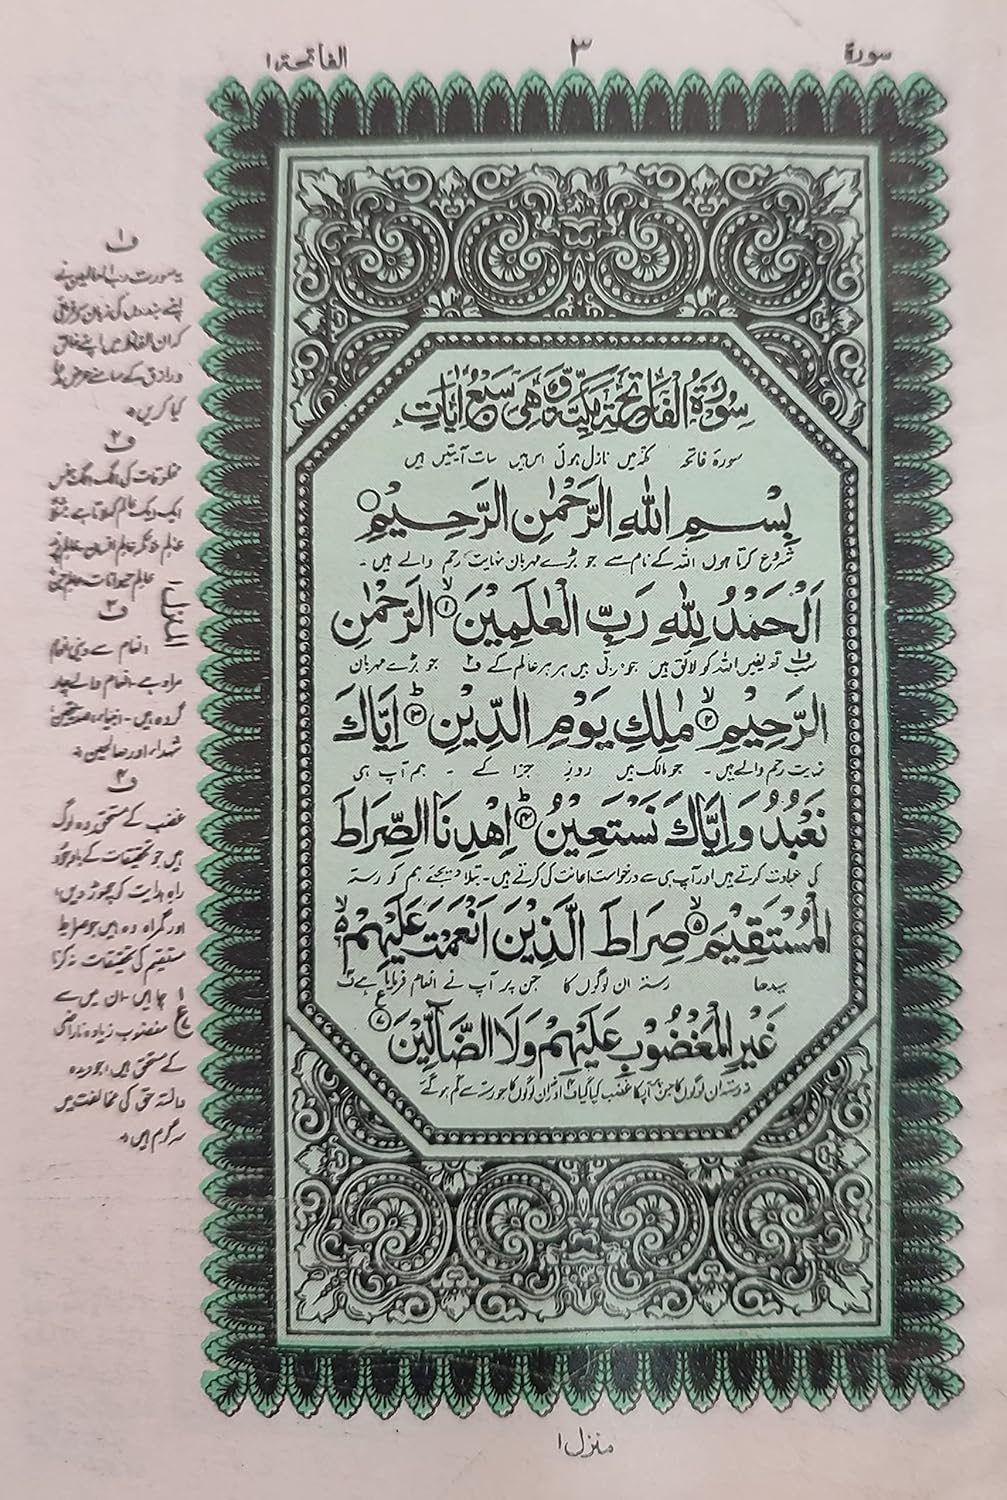 سورة
٣
الفاتحة ١
سُوْرَةُ الْفَاتِحَةِ مَكِّيَّةٌ وَّهِیَ سَبْعُ اٰیَاتٍ
سورۂ فاتحہ مکہ میں نازل ہوئی اس میں سات آیتیں ہیں
بِسْمِ اللّٰهِ الرَّحْمٰنِ الرَّحِیْمِ
شروع کرتا ہوں اللہ کے نام سے جو بڑے مہربان نہایت رحم والے ہیں۔
اَلْحَمْدُ لِلّٰهِ رَبِّ الْعٰلَمِیْنَ ۙ﴿١﴾ الرَّحْمٰنِ
سب تعریفیں اللہ کو لائق ہیں جو مربی ہیں ہر ہر عالم کے ف۲ جو بڑے مہربان
الرَّحِیْمِ ۙ﴿٢﴾ مٰلِكِ یَوْمِ الدِّیْنِ ؕ﴿٣﴾ اِیَّاكَ
نہایت رحم والے ہیں۔ جو مالک ہیں روز جزا کے ۔ ہم آپ ہی
نَعْبُدُ وَ اِیَّاكَ نَسْتَعِیْنُ ؕ﴿٤﴾ اِهْدِنَا الصِّرَاطَ
کی عبادت کرتے ہیں اور آپ ہی سے درخواست اعانت کی کرتے ہیں۔ بتلا دیجئے ہم کو رستہ
الْمُسْتَقِیْمَ ۙ﴿٥﴾ صِرَاطَ الَّذِیْنَ اَنْعَمْتَ عَلَیْهِمْ ۙ۬﴿٦﴾
سیدھا رستہ ان لوگوں کا جن پر آپ نے انعام فرمایا ہے ف۳
غَیْرِ الْمَغْضُوْبِ عَلَیْهِمْ وَ لَا الضَّآلِّیْنَ ﴿٧﴾
نہ رستہ ان لوگوں کا جن پر آپ کا غضب کیا گیا ف۴ اور نہ ان لوگوں کا جو رستہ سے گم ہو گئے
ف۱
یہ صورت رب العالمین نے
اپنے بندوں کی زبان سے فرمائی
کہ ان الفاظ میں اپنے خالق
و رازق کے سامنے عرض
کیا کریں۔
ف۲
مخلوقات کی الگ الگ جنس
ایک ایک عالم کہلاتا ہے
عالم
عالم حیوانات
المنزل ١
ف۳
انعام سے دینی انعام
مراد ہے۔ انعام والے چار
گروہ ہیں۔ انبیاء، صدیقین،
شہداء اور صالحین۔
ف۴
غضب کے مستحق وہ لوگ
ہیں جو تحقیقات کے باوجود
راہ ہدایت کو چھوڑ دیں،
اور گمراہ وہ ہیں جو صراط
مستقیم کی تحقیقات نہ کرنا
چاہیں۔ ان میں سے
مغضوب زیادہ ناراضی
کے مستحق ہیں، جو دیدہ
دانستہ حق کی مخالفت میں
سرگرم ہیں۔
١
ع
٧
منزل ١